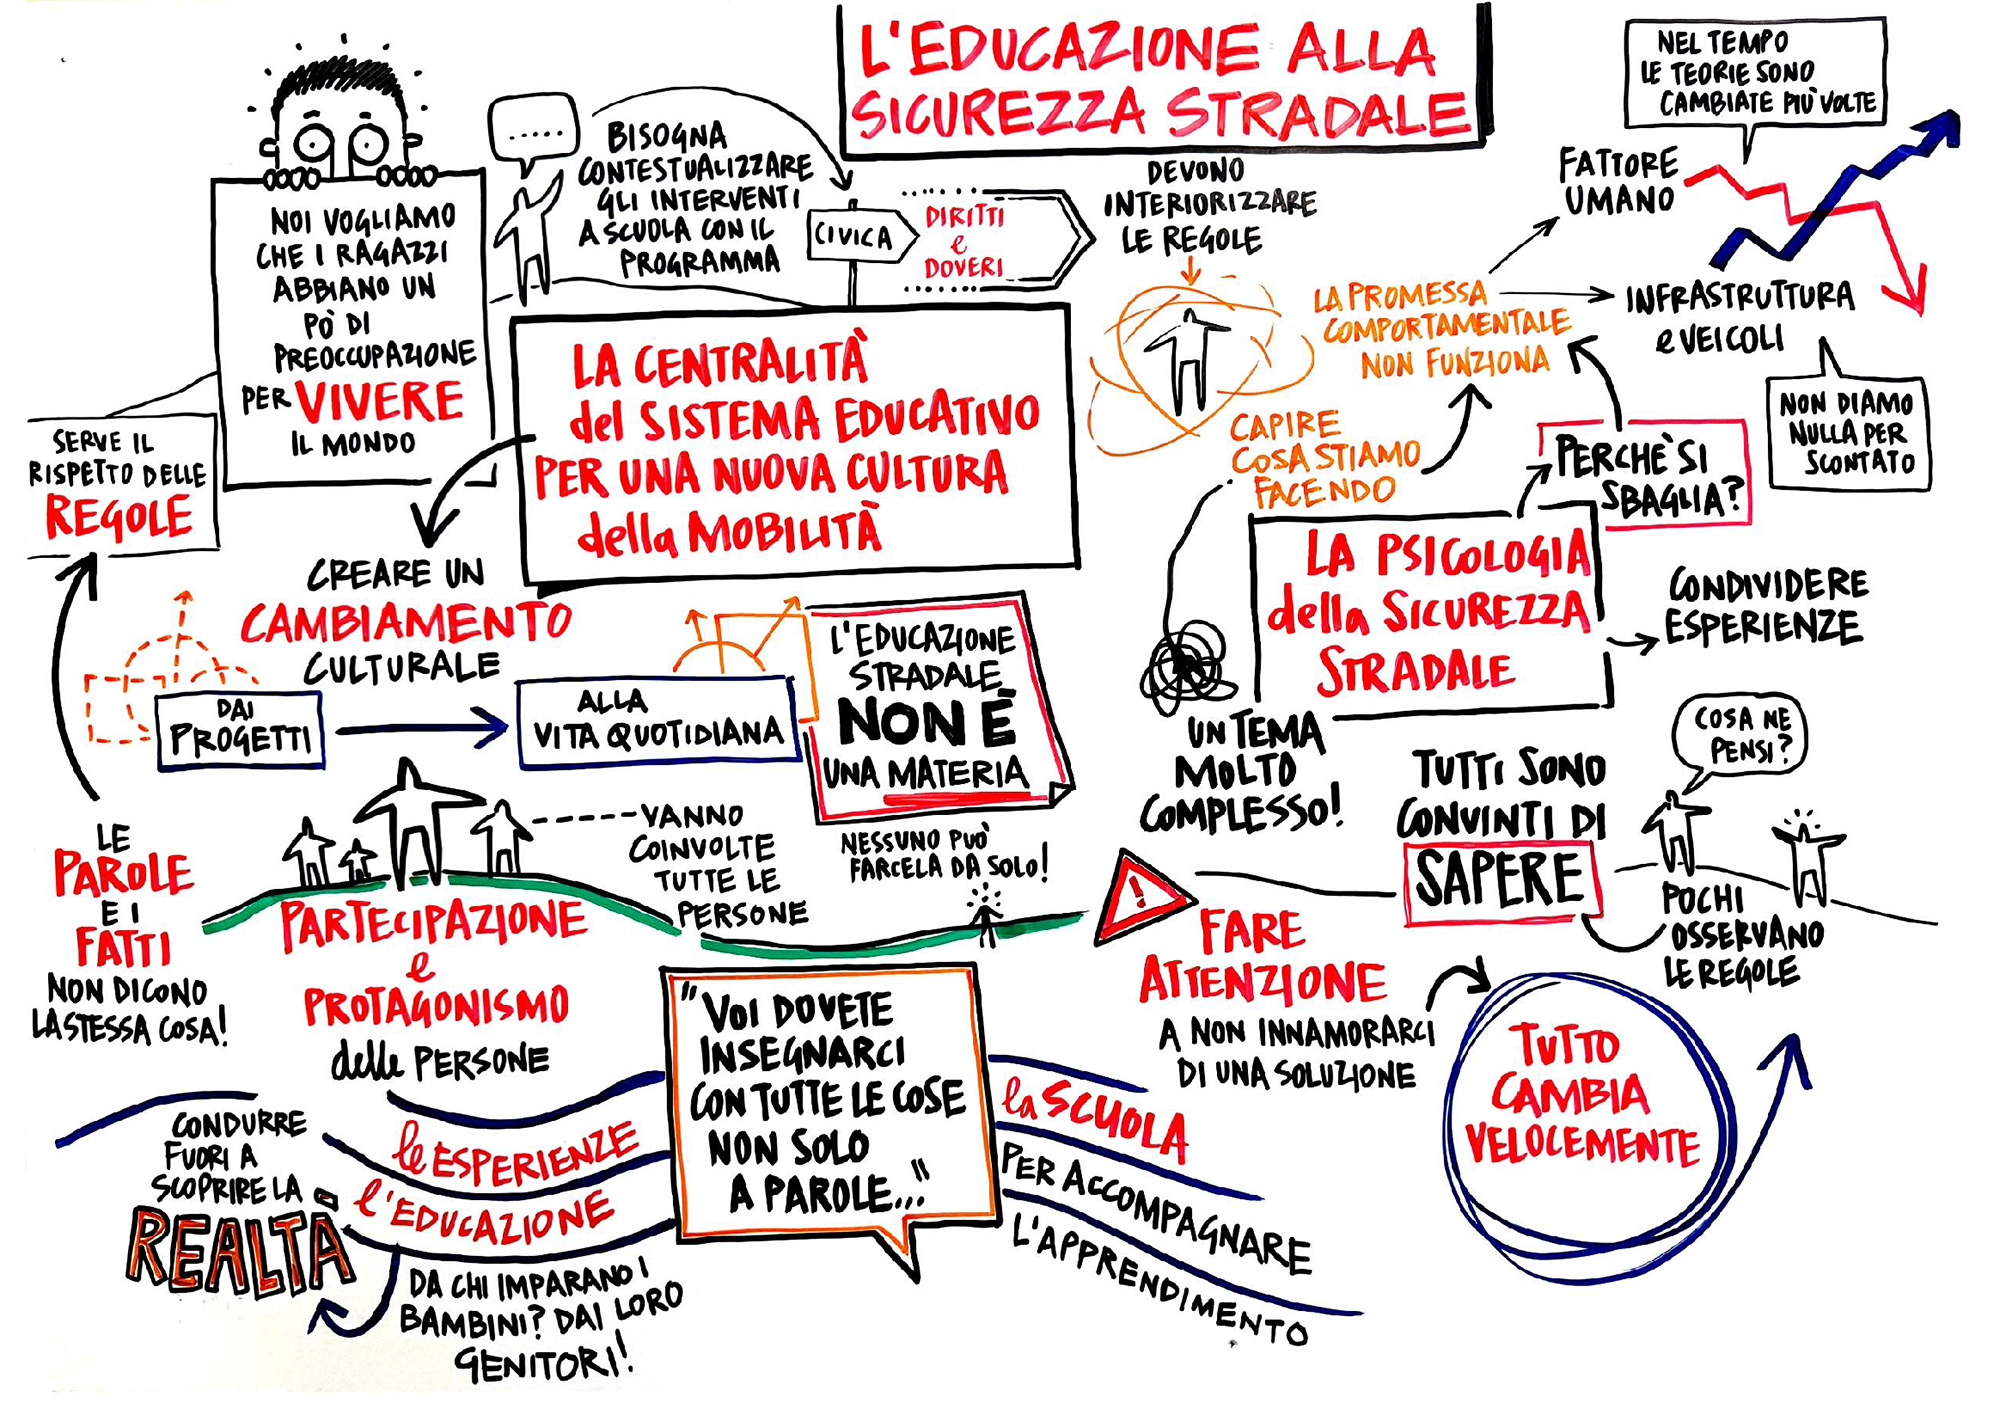 L'EDUCAZIONE ALLA
SICUREZZA STRADALE
NOI VOGLIAMO
CHE I RAGAZZI
ABBIANO UN
PO' DI
PREOCCUPAZIONE
PER VIVERE
IL MONDO
.....
BISOGNA
CONTESTUALIZZARE
GLI INTERVENTI
A SCUOLA CON IL
PROGRAMMA
CIVICA
DIRITTI
e
DOVERI
DEVONO
INTERIORIZZARE
LE REGOLE
NEL TEMPO
LE TEORIE SONO
CAMBIATE PIÙ VOLTE
FATTORE
UMANO
LA PROMESSA
COMPORTAMENTALE
NON FUNZIONA
INFRASTRUTTURA
e VEICOLI
NON DIAMO
NULLA PER
SCONTATO
SERVE IL
RISPETTO DELLE
REGOLE
LA CENTRALITÀ
del SISTEMA EDUCATIVO
PER UNA NUOVA CULTURA
della MOBILITÀ
CAPIRE
COSA STIAMO
FACENDO
PERCHÈ SI
SBAGLIA?
LA PSICOLOGIA
della SICUREZZA
STRADALE
CONDIVIDERE
ESPERIENZE
CREARE UN
CAMBIAMENTO
CULTURALE
DAI
PROGETTI
ALLA
VITA QUOTIDIANA
L'EDUCAZIONE
STRADALE
NON È
UNA MATERIA
NESSUNO PUÒ
FARCELA DA SOLO!
UN TEMA
MOLTO
COMPLESSO!
TUTTI SONO
CONVINTI DI
SAPERE
COSA NE
PENSI?
POCHI
OSSERVANO
LE REGOLE
LE
PAROLE
E I
FATTI
NON DICONO
LA STESSA COSA!
VANNO
COINVOLTE
TUTTE LE
PERSONE
PARTECIPAZIONE
e
PROTAGONISMO
delle PERSONE
!
FARE
ATTENZIONE
A NON INNAMORARCI
DI UNA SOLUZIONE
TUTTO
CAMBIA
VELOCEMENTE
"VOI DOVETE
INSEGNARCI
CON TUTTE LE COSE
NON SOLO
A PAROLE..."
CONDURRE
FUORI A
SCOPRIRE LA
REALTÀ
le ESPERIENZE
l'EDUCAZIONE
DA CHI IMPARANO I
BAMBINI? DAI LORO
GENITORI!
la SCUOLA
PER ACCOMPAGNARE
L'APPRENDIMENTO